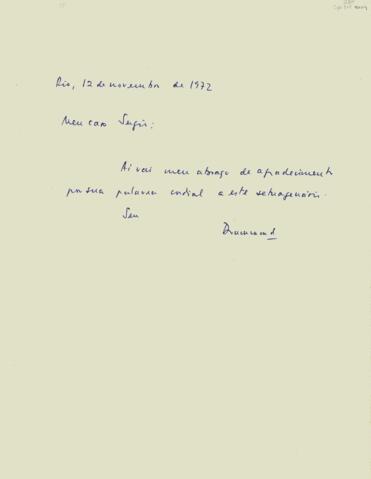 Rio, 12 de novembro de 1972
Meu caro Sergio:
Aí vai meu abraço de agradecimento
por sua palavra cordial a este setuagenário.
Seu
Drummond